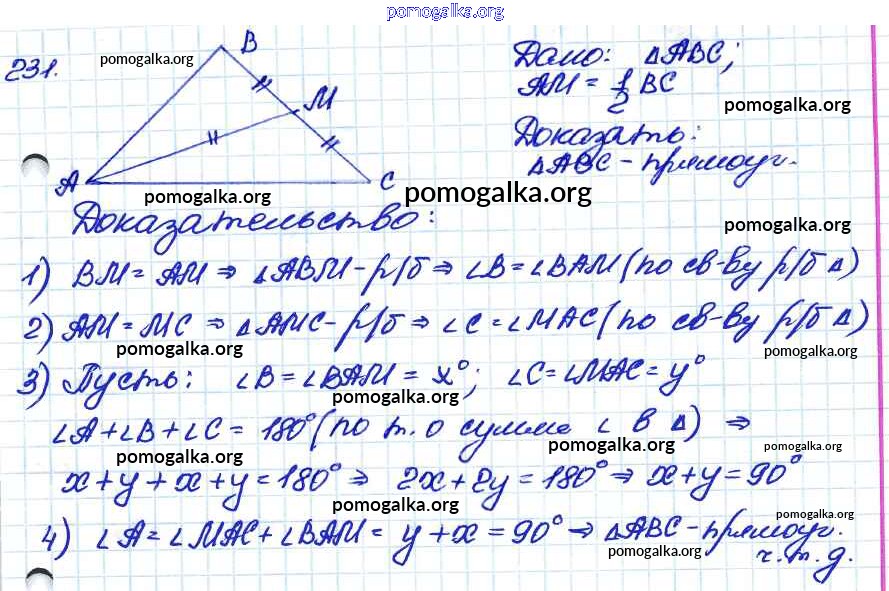 pomogalka.org
231.
pomogalka.org
B
M
A
C
pomogalka.org
Дано: △ABC;
AM = 1/2 BC
pomogalka.org
Доказать:
△ABC - прямоуг.
pomogalka.org
pomogalka.org
Доказательство:
1) BM = AM ⇒ △ABM - р/б ⇒ ∠B = ∠BAM (по св-ву р/б △)
2) AM = MC ⇒ △AMC - р/б ⇒ ∠C = ∠MAC (по св-ву р/б △)
pomogalka.org
pomogalka.org
3) Пусть: ∠B = ∠BAM = x°; ∠C = ∠MAC = y°
pomogalka.org
∠A + ∠B + ∠C = 180° (по т. о сумме ∠ в △) ⇒
pomogalka.org
pomogalka.org
pomogalka.org
x + y + x + y = 180° ⇒ 2x + 2y = 180° ⇒ x + y = 90°
pomogalka.org
pomogalka.org
4) ∠A = ∠MAC + ∠BAM = y + x = 90° ⇒ △ABC - прямоуг.
pomogalka.org
ч.т.д.